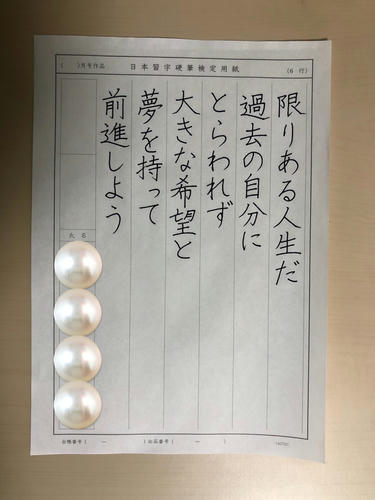 ( )月号作品 日本習字硬筆検定用紙 (6 行)
限りある人生だ
過去の自分に
とらわれず
大きな希望と
夢を持って
前進しよう
氏名
台帳番号( ー )出品番号( ー )